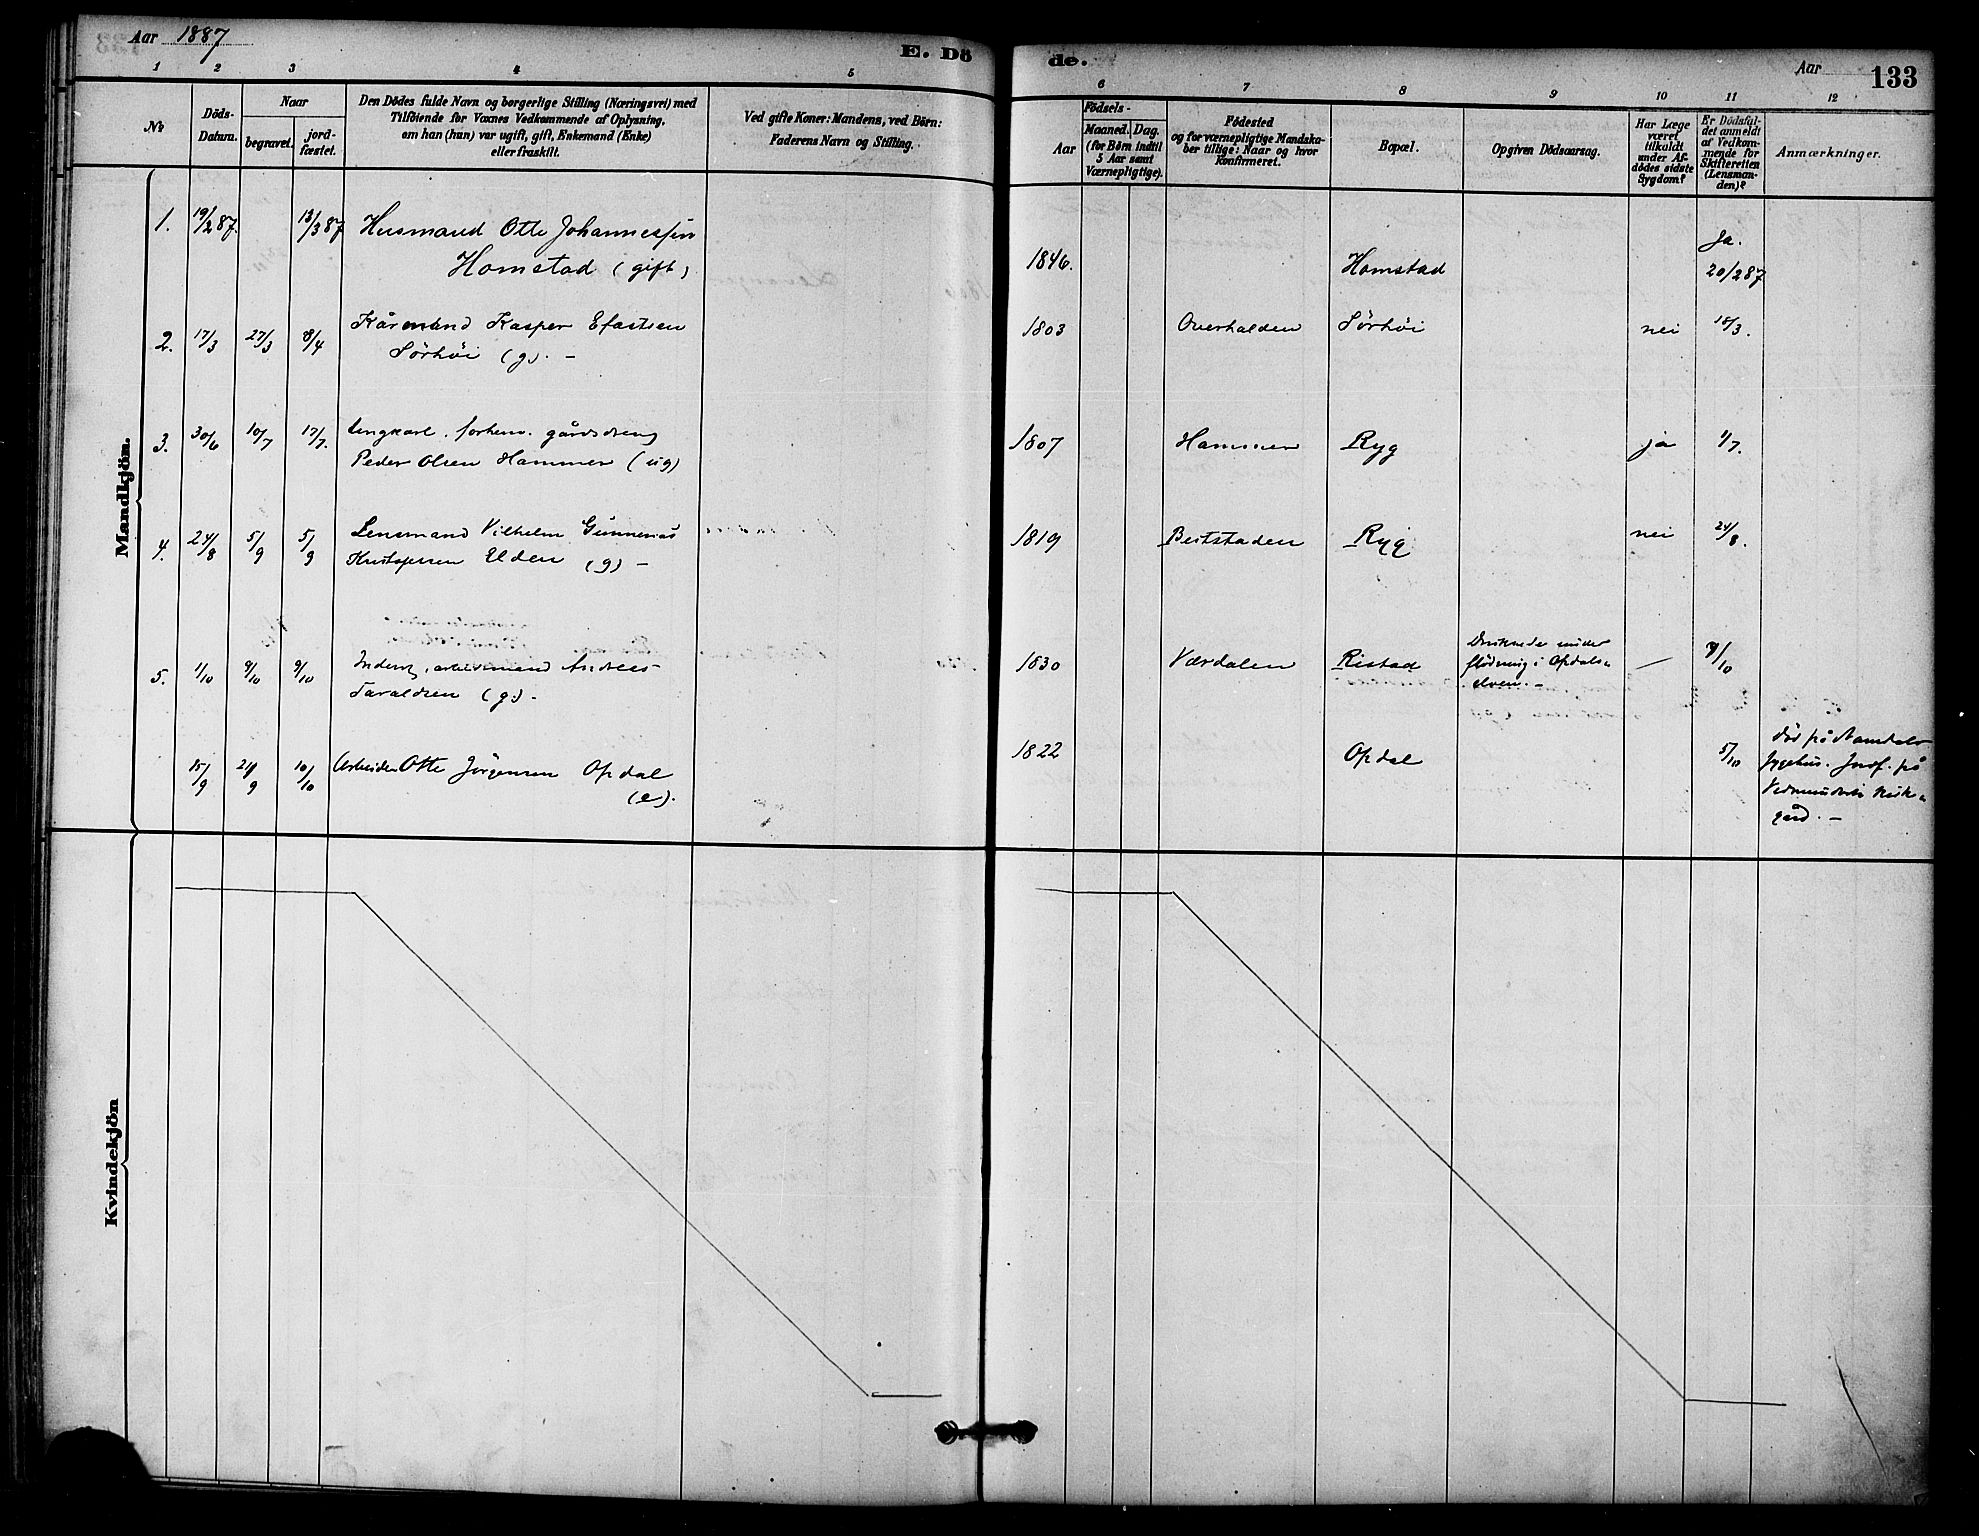 Aar 1887
E. Dö
de.
Aar
133
1 2 3 4 5
6 7 8 9 10 11 12
№
Döds-
Datum.
Naar
begravet.
jord-
fæstet.
Den Dödes fulde Navn og borgerlige Stilling (Næringsvei) med
Tilföiende for Voxnes Vedkommende af Oplysning,
om han (hun) var ugift, gift, Enkemand (Enke)
eller fraskilt.
Ved gifte Koner: Mandens, ved Börn:
Faderens Navn og Stilling.
Födsels-
Aar
Maaned. Dag.
(for Börn indtil
5 Aar samt
Værnepligtige).
Födested
og for værnepligtige Mandska-
ber tillige: Naar og hvor
konfirmeret.
Bopæl.
Opgiven Dödsaarsag.
Har Læge
været
tilkaldt
under Af-
dödes sidste
Sygdom?
Er Dödsfal-
det anmeldt
af Vedkom-
mende for
Skifteretten
(Lensman-
den)?
Anmærkninger.
Mandkjön.
1. 19/2 87. 13/3 87 Husmand Otte Johannessen
Homstad (gift)
1846. Homstad Ja.
20/2 87
2. 17/3 27/3 8/4 Kårmand Kasper Efastsen
Sörhöi (g). –
1803 Overhalden Sörhöi nei 18/3.
3. 30/6 10/7 17/7. forhenv. gårdsdreng
Peder Olsen Hammer (ug)
1807 Hammer Ryg ja 1/7.
4. 24/8 5/9 5/9 Lensmand Vilhelm Gunnerius
Kristofersen Elden (g) –
1819 Beitstaden Ryg nei 24/8.
5. 1/10 9/10 9/10 Inderst, arbeidsmand Andreas
Taraldsen (g.) –
1830 Værdalen Ristad Druknede under
flödning i Opdals-
elven. – — 9/10
15/9 21/9 10/10 Arbeider Otte Jörgensen Opdal
(e).
1822 Opdal 5/10 död på Namdals
sygehus. Jordf. på
Kirke-
gård. –
Kvindekjön